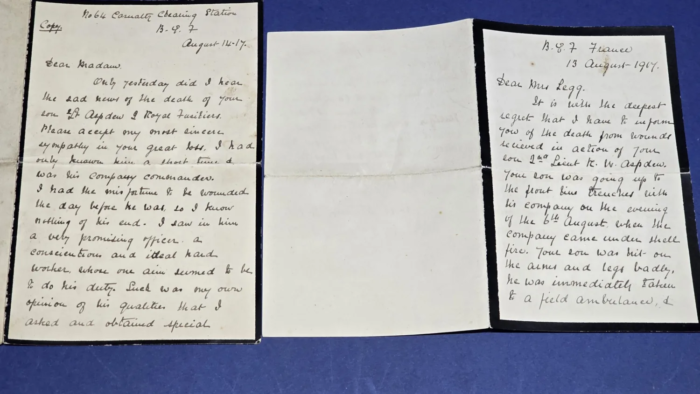 No 64 Casualty Clearing Station
Copy.
B. E. F
August 14-17.
Dear Madam.
Only yesterday did I hear
the sad news of the death of your
son 2/Lt Aspden 2 Royal Fusiliers.
Please accept my most sincere
sympathy in your great loss. I had
only known him a short time &
was his company commander.
I had the misfortune to be wounded
the day before he was, so I know
nothing of his end. I saw in him
a very promising officer. a
conscientious and ideal hard
worker whose one aim seemed to be
to do his duty. Such was my own
opinion of his qualities that I
asked and obtained special
B. E. F France
13 August 1917.
Dear Mrs Legg.
It is with the deepest
regret that I have to inform
you of the death from wounds
recieved in action of your
son 2nd Lieut W. Aspden.
Your son was going up to
the front line trenches with
his company on the evening
of the 6th August when the
company came under shell
fire. Your son was hit on
the arms and legs badly,
he was immediately taken
to a field ambulance, &